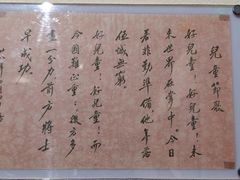 兒童節歌
好兒童！好兒童！未
來世界在掌中。今日
若非勤準備，他年落
伍憾無窮。
好兒童！好兒童！而
今國難正重重；後方多
盡一分力，前方將士
早成功